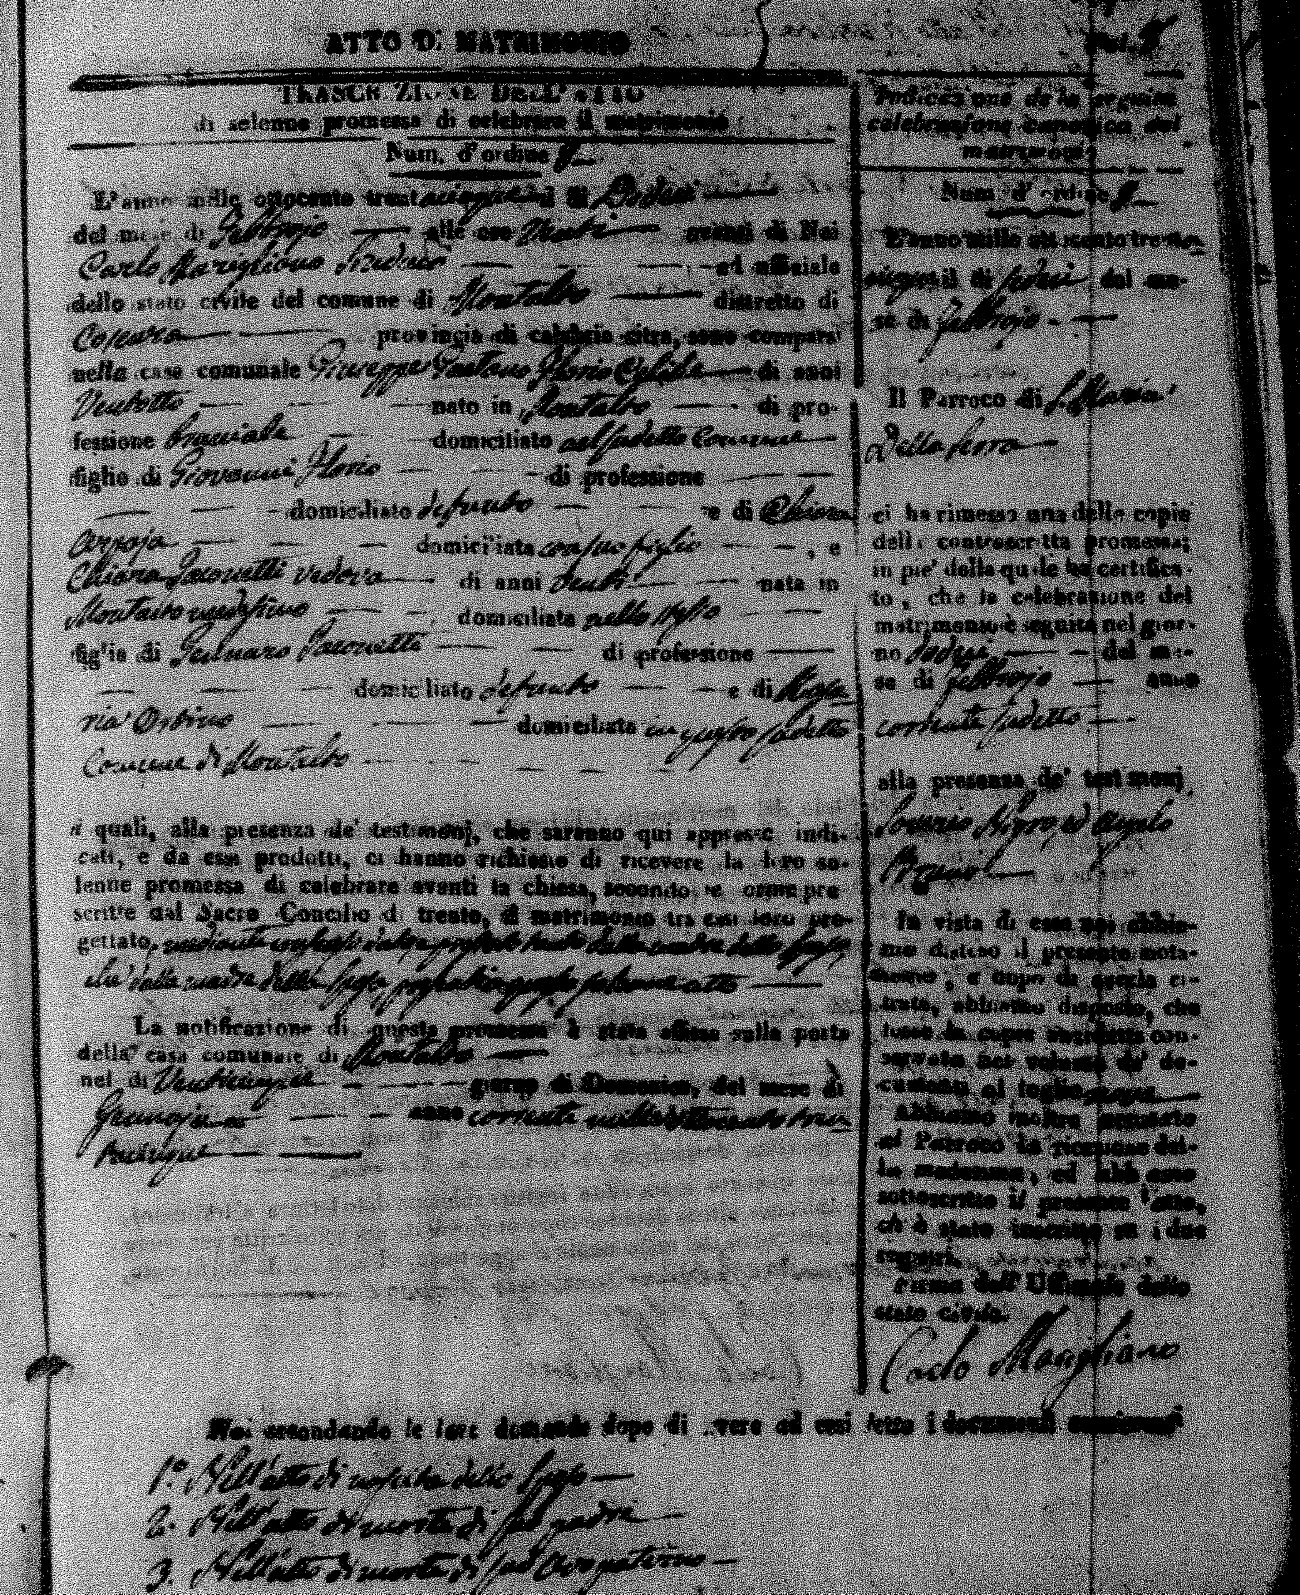 ATTO DI MATRIMONIO
Fol.
TRASCRIZIONE DELL' ATTO
di solenne promessa di celebrare il matrimonio
Num. d'ordine
L'anno mille ottocento trentacinque il di Dodeci
del mese di Febbrajo alle ore Venti avanti di Noi
Carlo Marigliano Sindaco ed uffiziale
dello stato civile del comune di Montalto distretto di
Cosenza provincia di calabria citra, sono comparsi
nella casa comunale Giuseppe Gaetano Florio Celibe di anni
Ventotto nato in Montalto di pro-
fessione bracciale domiciliato nel sudetto Comune
figlio di Giovanni Florio di professione
domiciliato defunto e di Chiara
domiciliata con suo figlio , e
Chiara Iaconetti vedova di anni venti nata in
Montalto medesimo domiciliata nello stesso
figlia di Gennaro Iaconetti di professione
domiciliato defunto e di Maria
domiciliata in questo sudetto
Comune di Montalto
i quali, alla presenza de' testimonj, che saranno qui appresso indi-
cati, e da essi prodotti, ci hanno richiesto di ricevere la loro so-
lenne promessa di celebrare avanti la chiesa, secondo le forme pre
scritte dal Sacro Concilio di trento, il matrimonio tra essi loro pro-
gettato, mediante della madre dello Sposo
della madre della Sposa, atto
La notificazione di questa promessa è stata affissa sulla porta
della casa comunale di Montalto
nel di Venticinque giorno di Domenica, del mese di
Gennajo anno corrente mille ottocento tren
tacinque
Indicazione della seguita
celebrazione canonica del
matrimonio
Num. d'ordine
L'anno mille ottocento trenta
cinque il di dodeci del me-
se di Febbrajo
Il Parroco di S. Maria
della Serra
ci ha rimessa una delle copie
della controscritta promessa;
in piè della quale ha certifica-
to, che la celebrazione del
matrimonio è seguita nel gior-
no dodeci del me-
se di Febbrajo anno
corrente sudetto
alla presenza de' testimonj
Nigro, ed Angelo
In vista di essa noi abbia-
mo disteso il presente nota-
mento, e dopo di averla ci-
frata, abbiamo disposto, che
fosse la copia anzidetta con-
servata nel volume de' do-
cumenti al foglio
Abbiamo inoltre accusato
al Parroco la ricezione del-
la medesima, ed abbiamo
sottoscritto il presente atto,
ch' è stato inscritto su i due
registri.
Firma dell' Uffiziale dello
stato civile.
Carlo Marigliano
Noi secondando le loro domande dopo di avere ad essi letto i documenti consistenti
1.° Nell'atto di nascita dello Sposo
2. Nell'atto di morte di suo padre
3. Nell'atto di morte di suo Avo paterno